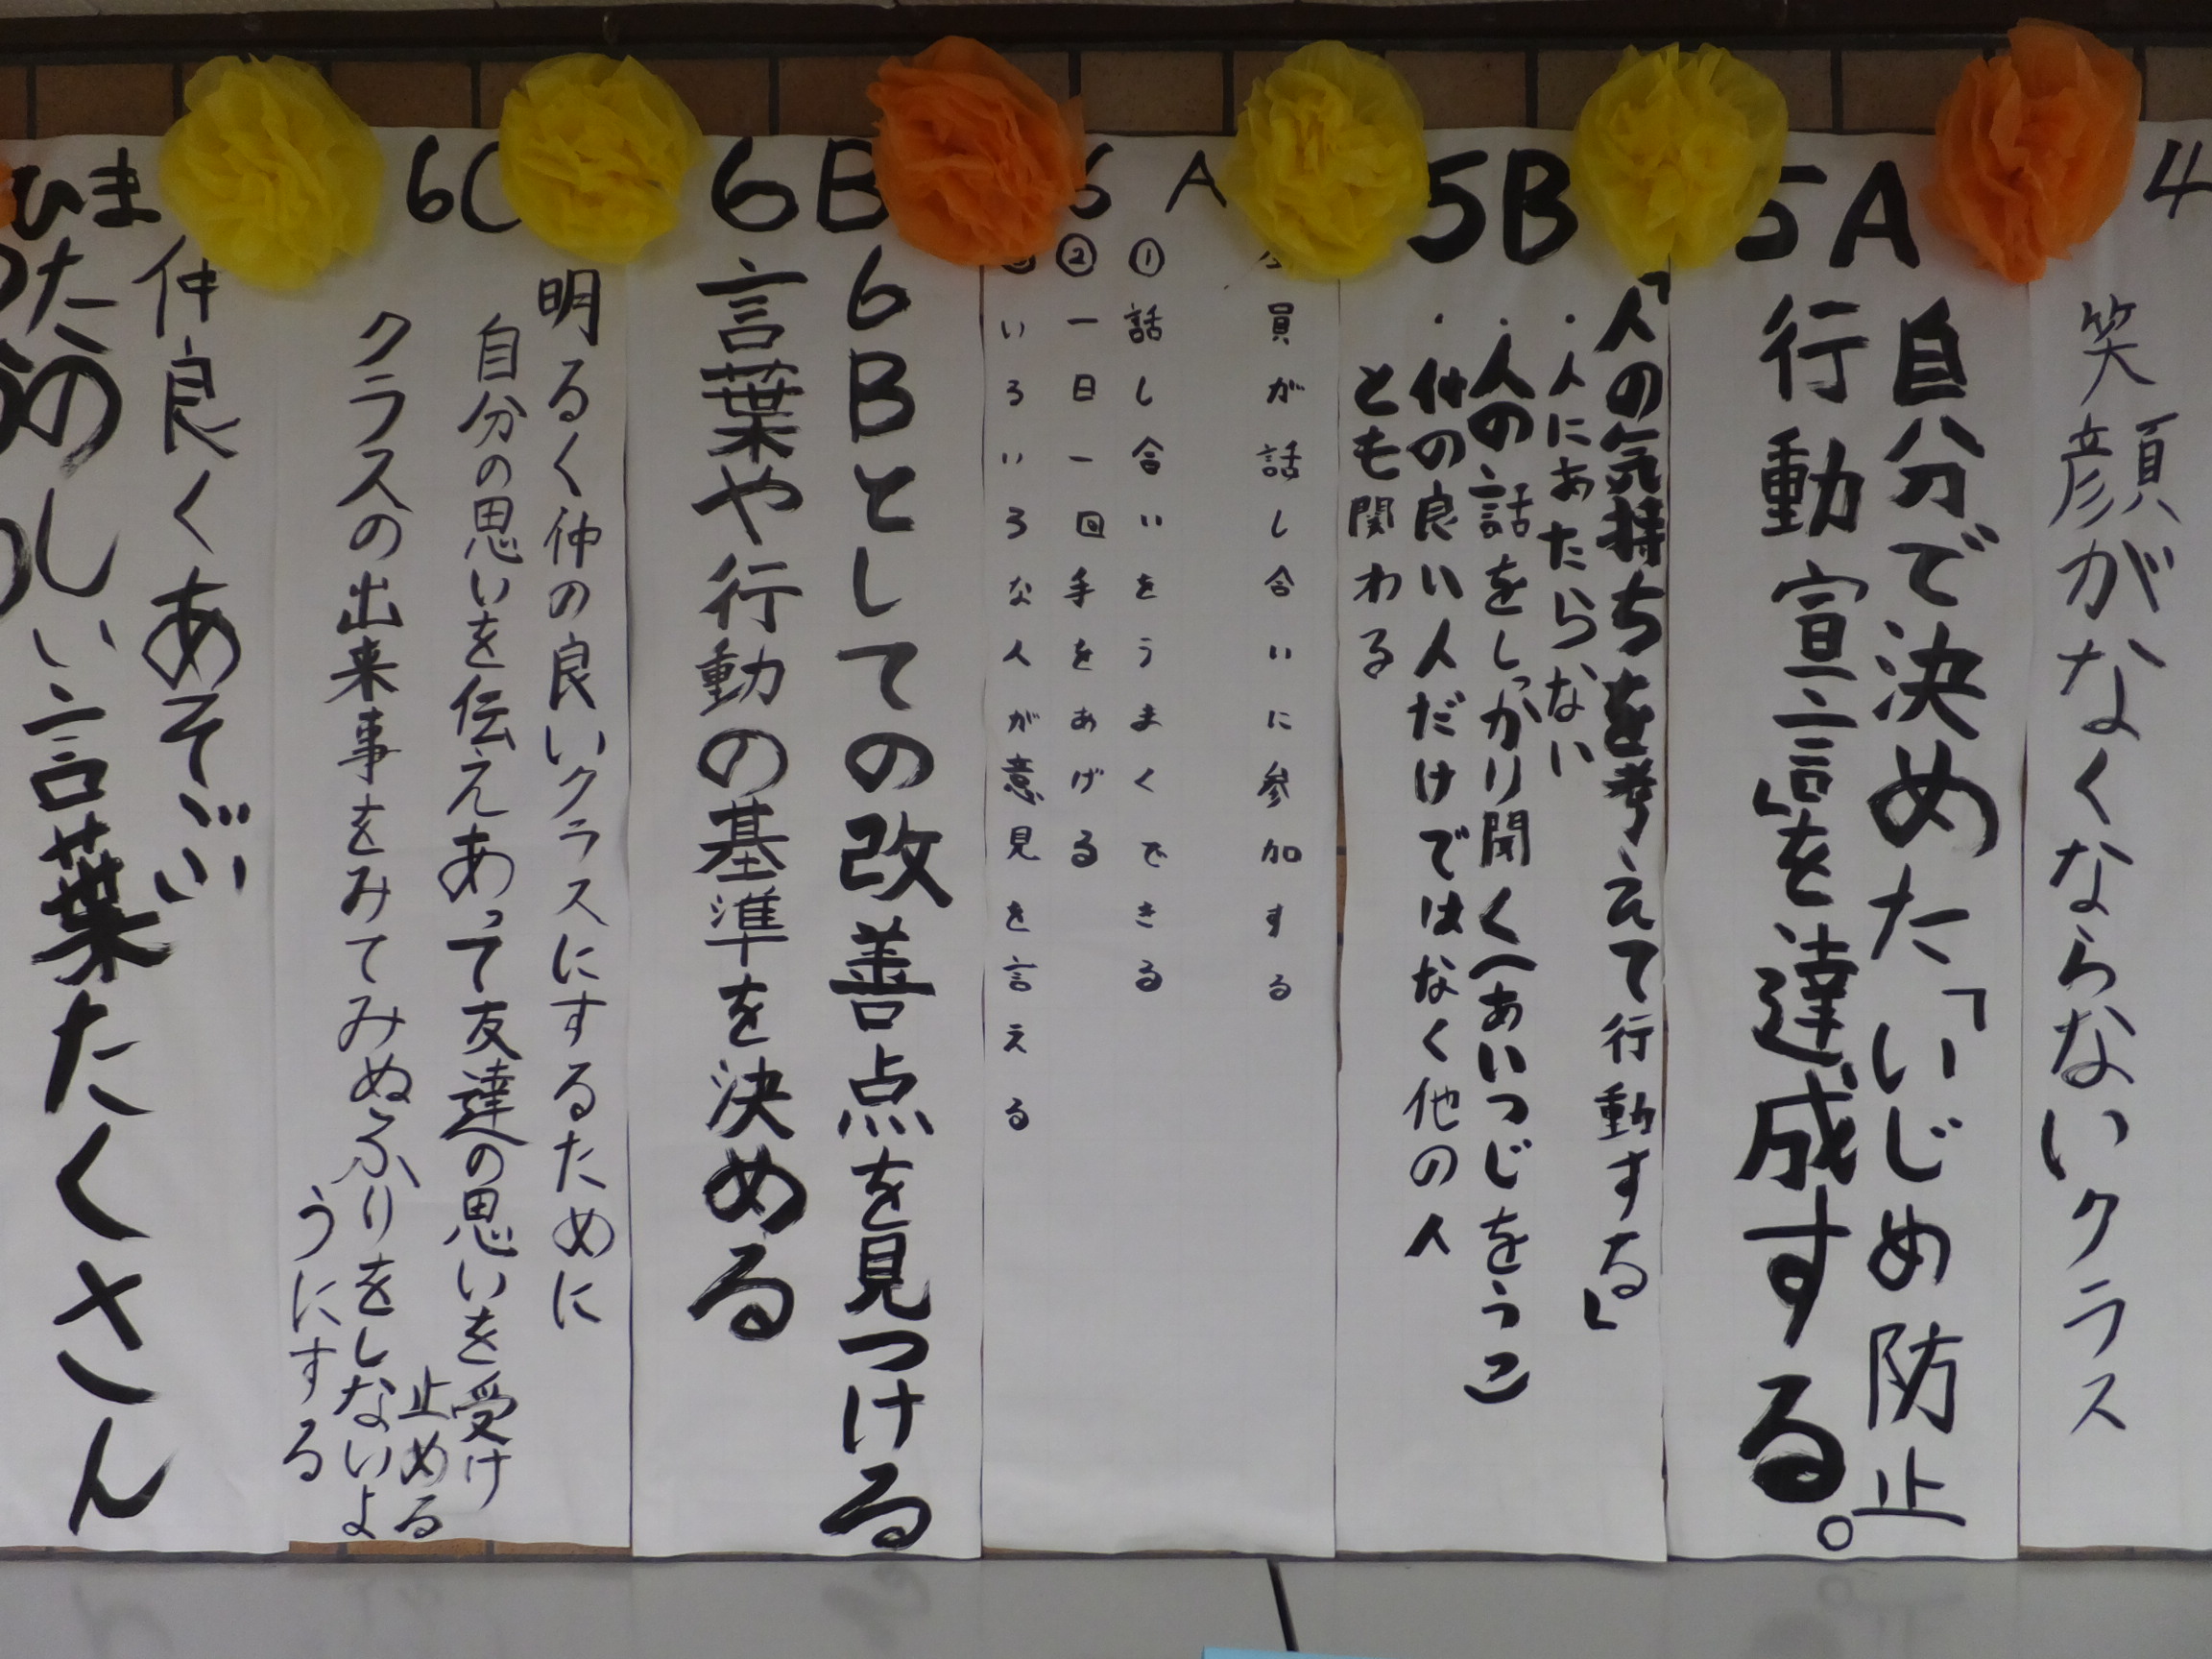 4
笑顔がなくならないクラス
5A
自分で決めた「いじめ防止
行動宣言」を達成する。
5B
「人の気持ちを考えて行動する」
・人にあたらない
・人の話をしっかり聞く(あいづちをうつ)
・仲の良い人だけではなく他の人
とも関わる
6A
全員が話し合いに参加する
①話し合いをうまくできる
②一日一回手をあげる
③いろいろな人が意見を言える
6B
6Bとしての改善点を見つける
言葉や行動の基準を決める
6C
明るく仲の良いクラスにするために
自分の思いを伝えあって友達の思いを受け
止める
クラスの出来事をみてみぬふりをしないよ
うにする
ひま
仲良くあそぶ
たのしい言葉たくさん